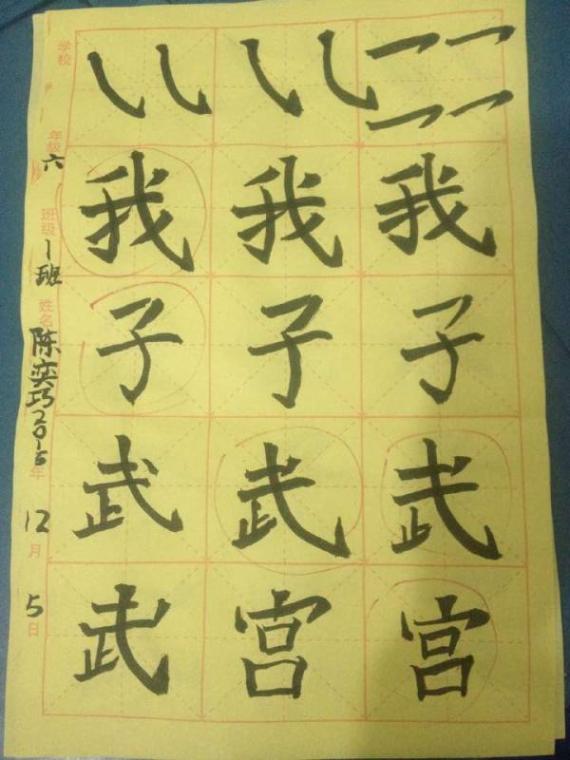 学校 年级 六 班级 1班 姓名 陈奕巧 2015年 12月 5日
我 我 我
子 子 子
武 武 武
武 宫 宫